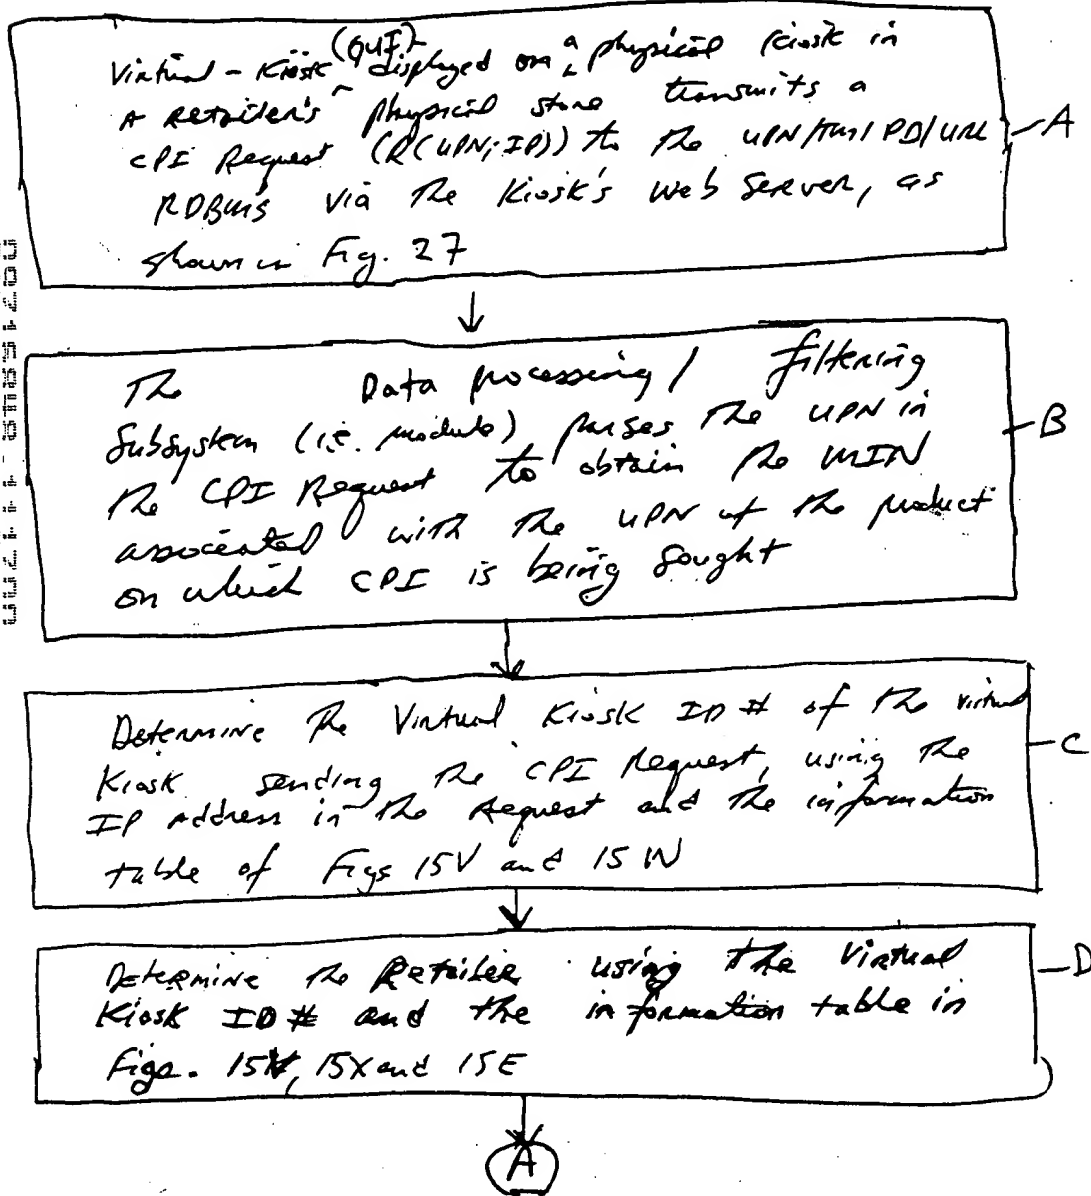 Virtual-Kiosk (GUI) displayed on a physical Kiosk in
A Retailer's physical store transmits a
CPI Request (R(UPN; IP)) to the UPN/TM/PD/URL
RDBMS via the Kiosk's Web Server, as
shown in Fig. 27
A
The Data processing / filtering
Subsystem (i.e. module) parses the UPN in
the CPI Request to obtain the MIN
associated with the UPN of the product
on which CPI is being sought
B
Determine the Virtual Kiosk ID # of the virtual
Kiosk sending the CPI Request, using the
IP Address in the Request and the information
table of Figs 15V and 15W
C
Determine the Retailer using the Virtual
Kiosk ID # and the information table in
Figs. 15W, 15X and 15E
D
A